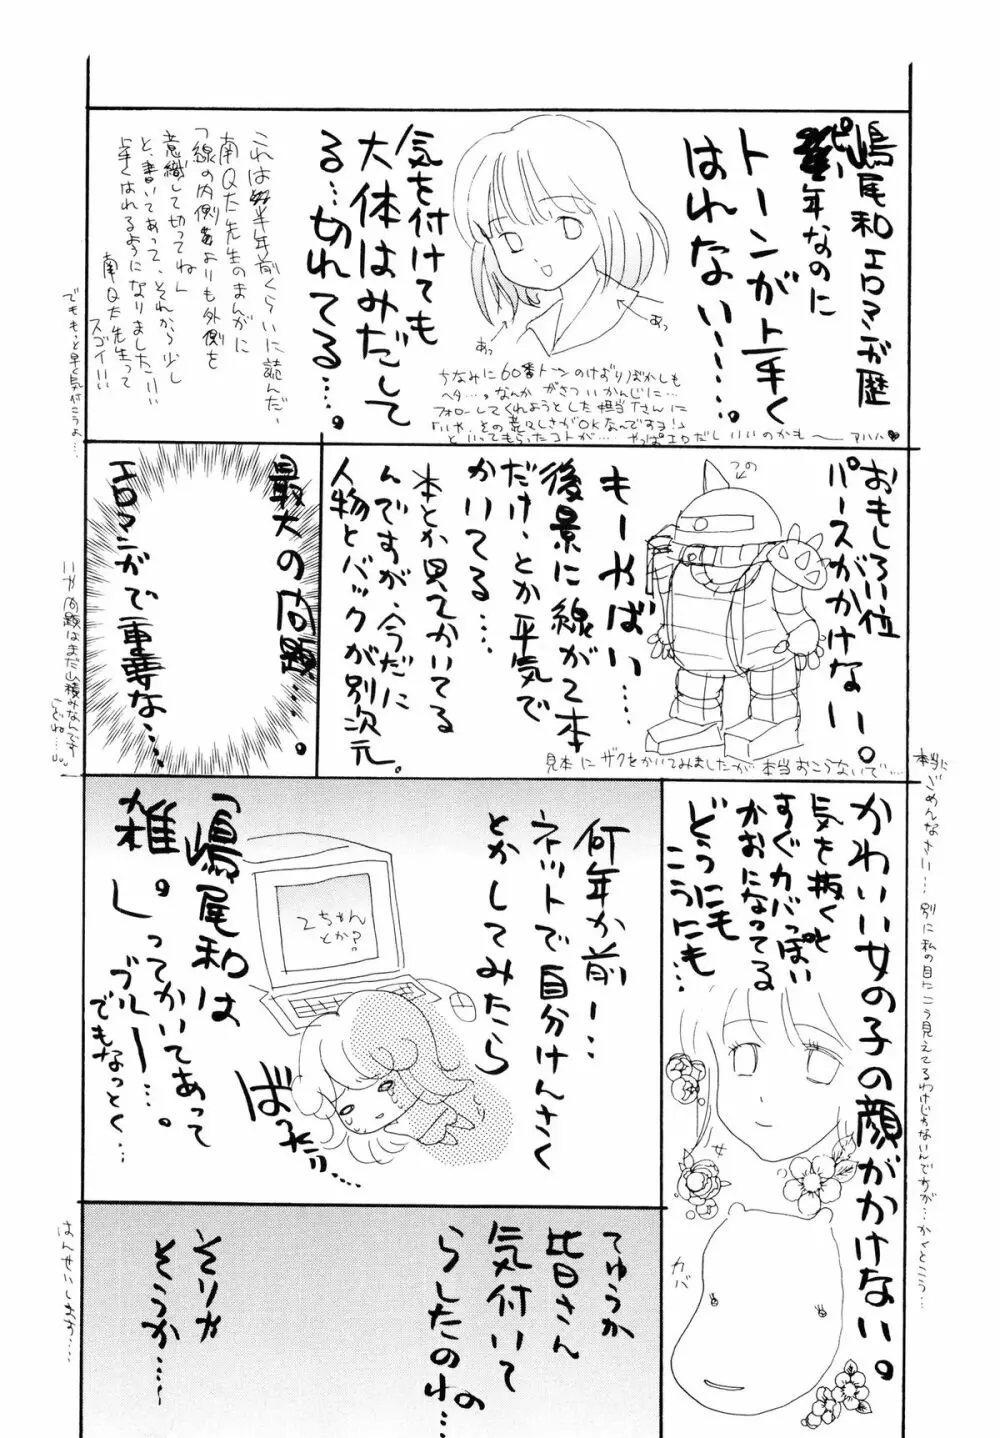 嶋尾和エロマンガ歴
ピー年なのに
トーンが上手く
はれない……。
気を付けても
大体はみだして
る…切れてる。
これは半年前くらいに読んだ、
南Q太先生のまんがに
「線の内側よりも外側を
意識して切ってね」
と、書いてあって、それから少し
上手くはれるようになりました!!!
南Q太先生って
スゴイ!!!
でももっと早く気付こうよ…。
あっ
あっ
ちなみに60番トーンのけずりぼかしも
ヘタ…。なんかがさついかんじに…
フォローしてくれようとした担当Tさんに
「いや、その荒々しさがOKなんですヨ!」
といってもらったコトが…。やっぱエロだしいいのかも〜 アハハ♥
おもしろい位
パースがかけない。
つの
もーやばい…。
後景に線が2本
だけ、とか平気で
かいてる…。
本とか見てかいてる
んですが、今だに
人物とバックが別次元。
見本にザクをかいてみましたが本当おこらないで……
本当にごめんなさい…別に私の目にこう見えてるわけじゃないんですが…かくとこう…
最大の問題…。
エロマンガで重要な…
いや問題はまだ山積みなんですけどね…。
かわいい女の子の顔がかけない。
気を抜くと
すぐカバっぽい
かおになってる
どうにも
こうにも…
カバ
何年か前…
ネットで自分けんさく
とかしてみたら
2ちゃん
とか?
「嶋尾和は
雑。」ってかいてあって
ブルー…。
でもなっとく…
ばったり…
てゆうか
皆さん
気付いて
らしたのね…
そりゃ
そうか…〜
はんせいしまーす…